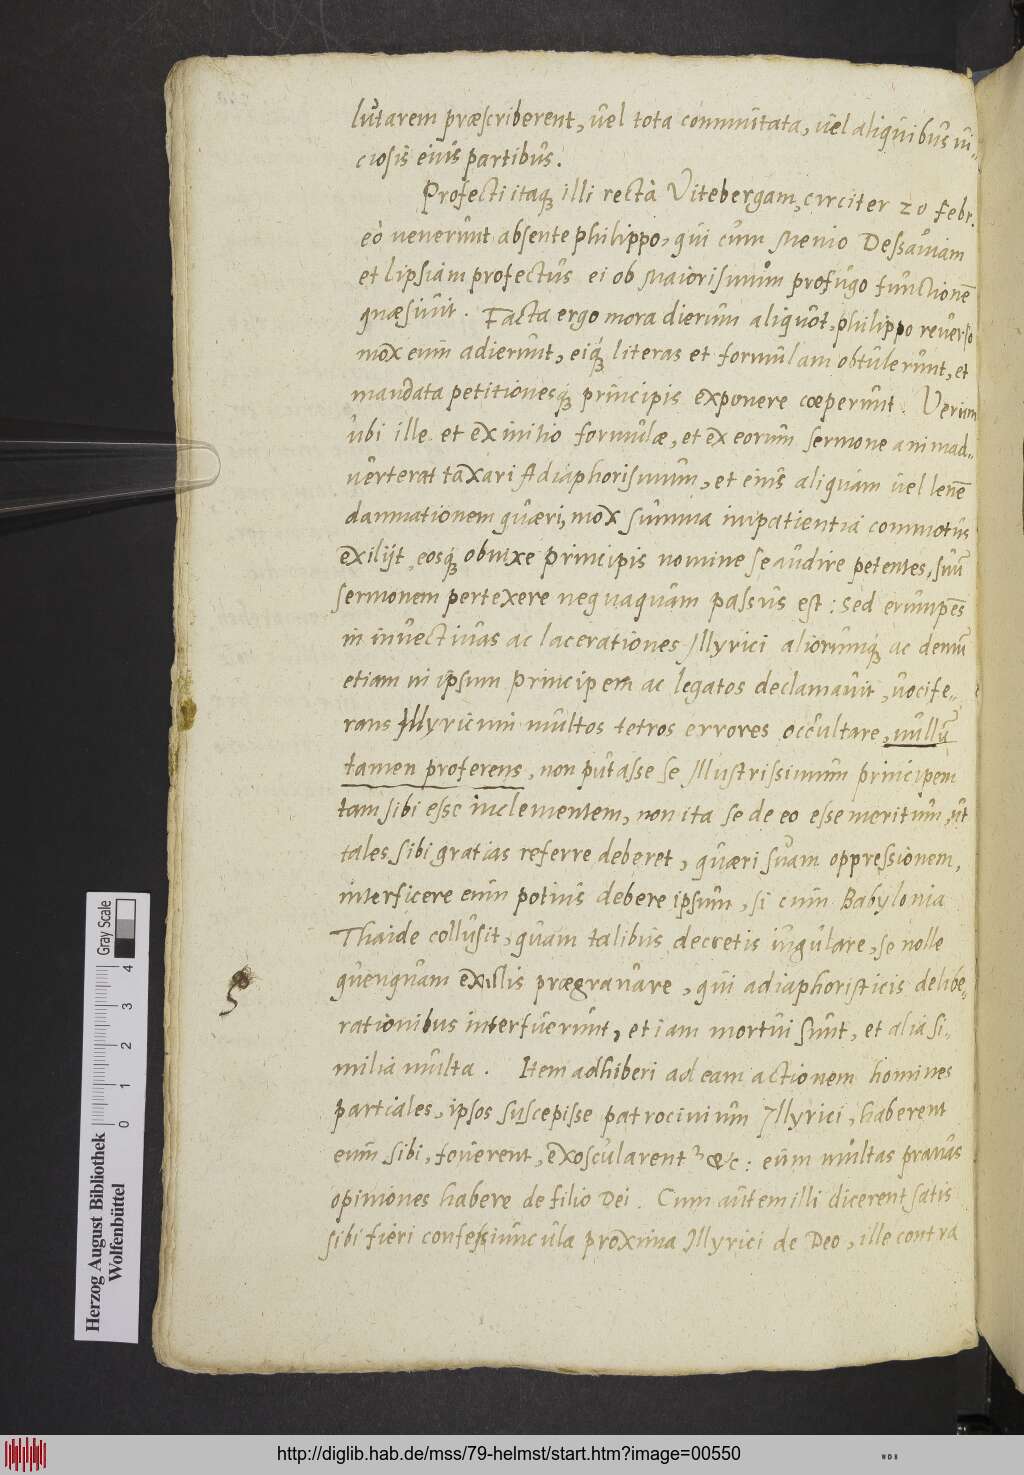 lutarem præscriberent, uel tota commutata, uel aliquibus ui-
ciosis eius partibus.
Profecti itaq illi rectà Vitebergam, circiter 20 febr.
eò uenerunt absente Philippo, qui cum Menio Dessauiam
et Lipsiam profectus ei ob Maiorismum profugo functionē
quæsiuit. Facta ergo mora dierum aliquot, philippo reuerso
mox eum adierunt, eiq literas et formulam obtulerunt, et
mandata petitionesq principis exponere cœperunt. Verum
ubi ille et ex initio formulæ, et ex eorum sermone animad-
uerterat taxari Adiaphorismum, et eius aliquam uel lenē
damnationem quæri, mox summa inpatientia commotus
exilijt, eosq obnixe Principis nomine se audire petentes, suū
sermonem pertexere nequaquam passus est: sed erumpēs
in inuectiuas ac lacerationes Illyrici aliorumq ac demū
etiam in ipsum Principem ac legatos declamauit, uocife-
rans Illyricum multos tetros errores occultare, nullū
tamen proferens, non putasse se Illustrissimum principem
tam sibi esse inclementem, non ita se de eo esse meritum, ut
tales sibi gratias referre deberet, quæri suam oppressionem,
interficere eum potius debere ipsum, si cum Babylonia
Thaide collusit, quam talibus decretis iugulare, se nolle
quenquam exillis prægrauare, qui adiaphoristicis delibe-
rationibus interfuerunt, et iam mortui sunt, et alia si-
milia multa. Item adhiberi ad eam actionem homines
partiales, ipsos suscepisse patrocinium Illyrici, haberent
eum sibi, fouerent, exoscularent &c: eum multas prauas
opiniones habere de filio Dei. Cum autem illi dicerent satis
sibi fieri confessiuncula proxima Illyrici de Deo, ille contra
Herzog August Bibliothek
Wolfenbüttel
Gray Scale
0 1 2 3 4
http://diglib.hab.de/mss/79-helmst/start.htm?image=00550
WDB